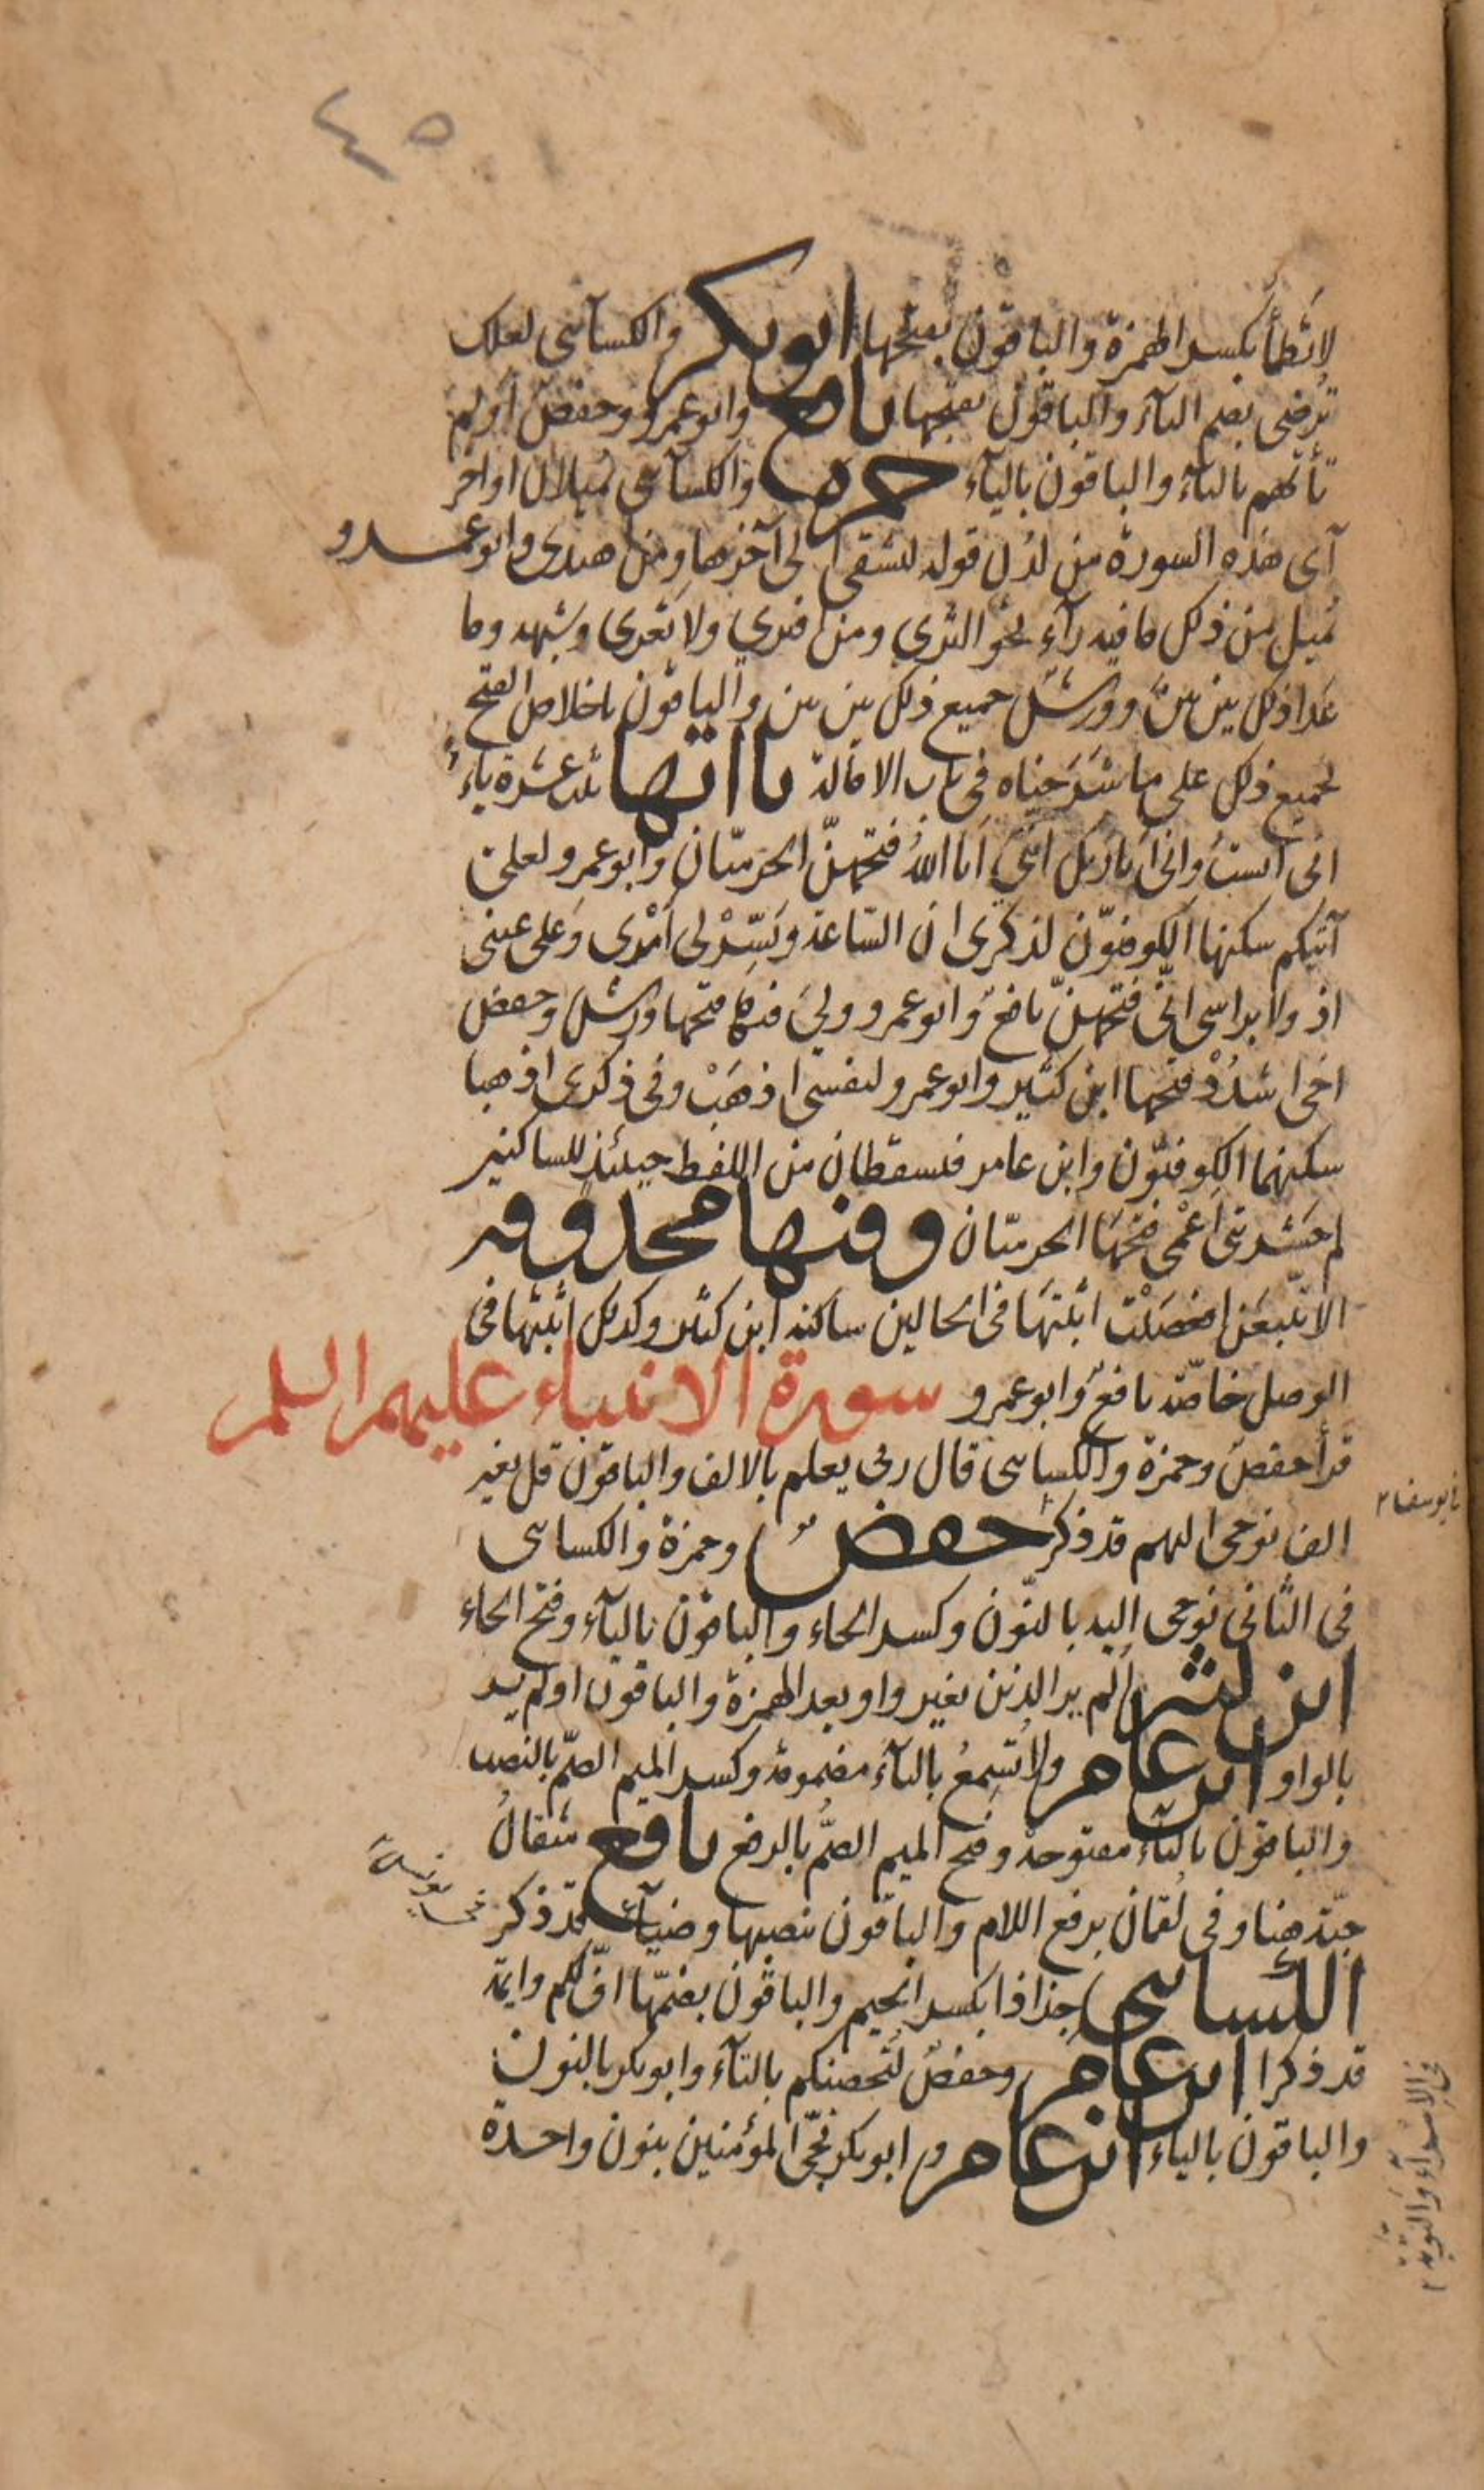 ٤٥
لا تظمأ بكسر الهمزة والباقون بفتحها ابو بكر والكسآئى لعلك
تُرضى بضم التآء والباقون بفتحها نافع وابو عمرو وحفص اولم
تأتهم بالتآء والباقون باليآء حمزة والكسآئى يُميلان اواخر
آى هذه السورة من لدن قوله لتشقى الى آخرها ومن اهتدى وابو عمـــرو
يُميل من ذلك ما فيه رآء نحو الثرى ومن افترى ولا تَعْرى وشبهه وما
عَدا ذلك بين بين وورش جميع ذلك بين بين والباقون باخلاص الفتح
لجميع ذلك على ما شَرَحناه فى باب الامالة يا اتها ثلث عشرة ياءً
انى آنستُ وانى اَنا ربك اننى اَنا اللهُ فتحهنّ الحرميّان وابو عمرو لعلى
آتيكم سكنها الكوفيّون لذكرى ان السّاعة ويَسّرْ لى اَمْرى وَعلى عينى
اذ ولا براسى انّى فتحهنّ نافعٌ وابو عمرو ولىَ فيها فتحها ورش وحفص
اخى اشدُدْ فتحها ابن كثير وابو عمرو لنفسى اذهَبْ وفى ذكرى اذهبا
سكنهما الكوفيّون وابن عامر فيسقطان من اللفظ حينئذٍ للساكنين
لم حَشَرتنى اَعْمى فتحهَا الحرميّان وفيها محذوفة
الا تتّبعَن افعصَيْت اثبتهَا فى الحالين ساكنه ابن كثير وكذلك اثبتها فى
الوصل خاصّه نافعٌ وابو عمرو سورة الانبياء عليهم السلم
قرأ حفصٌ وحمزة والكسائى قال ربى يعلم بالالف والباقون قل بغير
الف نوحى اليهم قد ذكر حفصٌ وحمزة والكسائى
فى يوسف
فى الثانى نوحى اليه بالنّون وكسر الحاء والباقون باليآء وفتح الحاء
ابن كثير الم ير الذين بغير واو بعد الهمزة والباقون اولم ير
بالواو ابن عامر ولا تُسِمعُ بالتآء مضمومة وكسر الميم الصمّ بالنصب
والباقون باليآء مفتوحة وفتح الميم الصمُّ بالرفع نافع مثقالُ
حبّة هنا وفى لقمان برفع اللام والباقون بنصبها وضيآء قد ذكر
فى يونس
الكسائى جذاذا بكسر الجيم والباقون بضمّها افّ لكم وايمّة
قد ذكرا ابن عامر وحفصٌ لتُحصنكم بالتآء وابو بكر بالنون
والباقون بالياء ابن عامر وابو بكر نجّى المؤمنين بنون واحدة
فى الاسرآء والتوبة